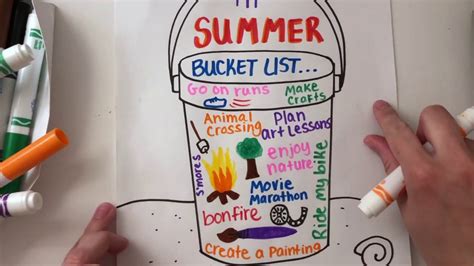 SUMMER
BUCKET LIST...
Go on runs
Make
Crafts
Animal
Crossing
Plan
art Lessons
s'mores
enjoy
nature
Ride my bike
Movie
Marathon
bonfire
Create a Painting